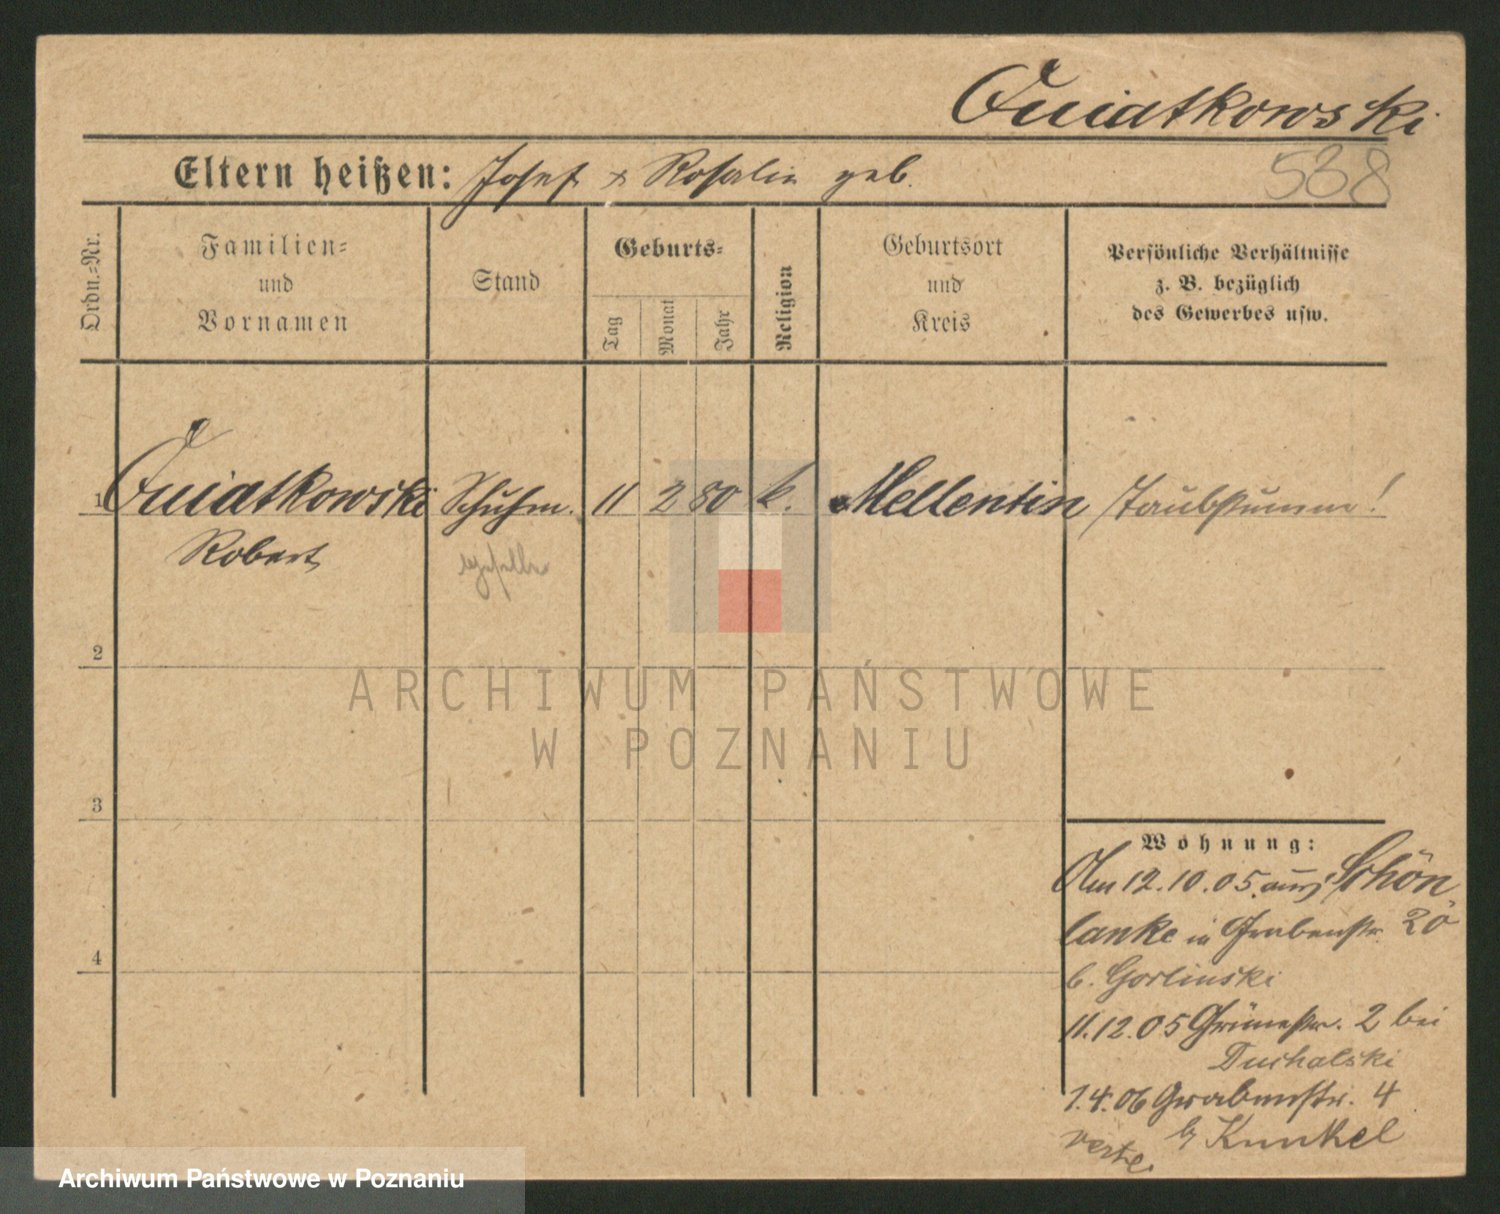 Quiatkowski
538
Eltern heißen: Josef x Rosalie geb.
Ordn.=Nr.
Familien=
und
Vornamen
Stand
Geburts=
Tag
Monat
Jahr
Religion
Geburtsort
und
Kreis
Persönliche Verhältnisse
z. B. bezüglich
des Gewerbes usw.
1 Quiatkowski Schuhm. 11 2 80 k. Mellentin Taubstumm!
Robert
2
ARCHIWUM PAŃSTWOWE
W POZNANIU
3
Wohnung:
Am 12.10.05 aus Schön
lanke in Grabenstr. 20
b. Gorlinski
4
11.12.05 Grünestr. 2 bei
Duchalski
1.4.06 Grabenstr. 4
b. Kunkel
verte.
Archiwum Państwowe w Poznaniu